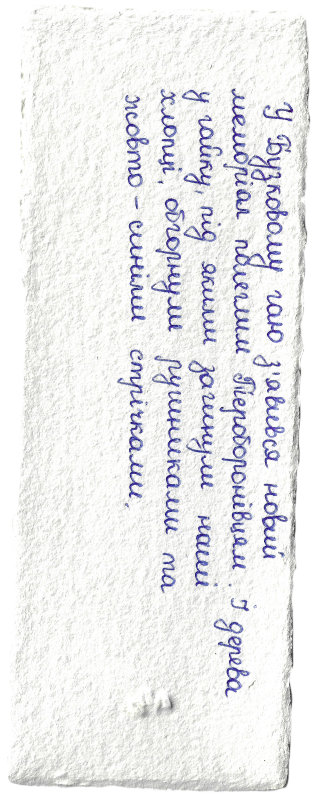 У Бузковому гаю з'явився новий
меморіал полеглим Тероборонівцям. І дерева
у гайку, під якими загинули наші
хлопці, обгорнули рушниками та
жовто-синіми стрічками.